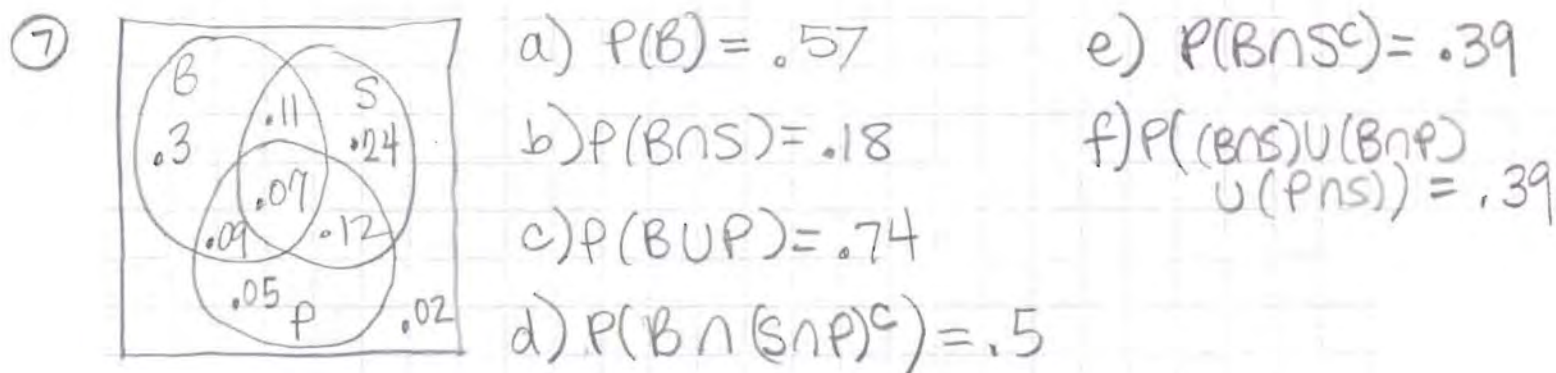 7
B
S
.11
.3
.24
.07
.09
.12
.05
P
.02
a) P(B) = .57
b) P(B∩S) = .18
c) P(B∪P) = .74
d) P(B∩(S∩P)ᶜ) = .5
e) P(B∩Sᶜ) = .39
f) P((B∩S)∪(B∩P)
∪(P∩S)) = .39